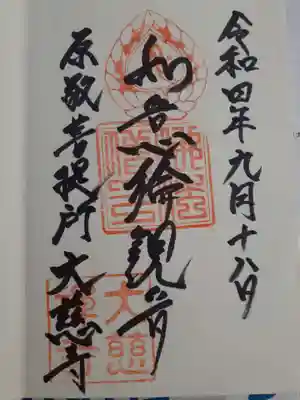 令和四年九月十八日
如意輪観音
佛法僧宝
原敬菩提所 大慈寺
大慈寺